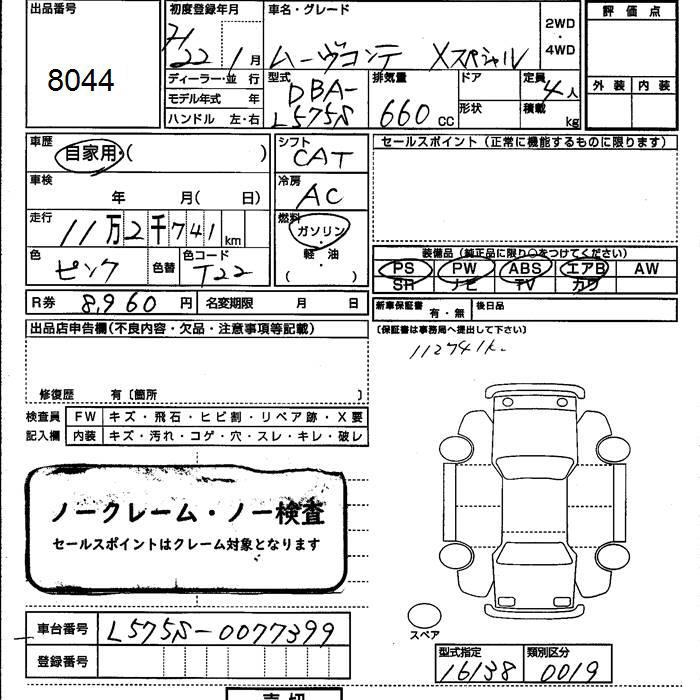 出品番号
8044
初度登録年月
H22 1月
車名・グレード
ムーヴコンテ Xスペシャル
2WD・4WD
評価点
外装 内装
ディーラー・並 行
モデル年式 年
ハンドル 左・右
型式
DBA-
L575S
排気量
660cc
ドア
形状
定員
4人
積載
kg
車歴
自家用・( )
車検
年 月(日)
走行
11万2千741km
色
ピンク
色替
色コード
T22
シフト
CAT
冷房
AC
燃料
ガソリン
軽・油
( )
R券 8,960円
名変期限 月 日
セールスポイント(正常に機能するものに限ります)
装備品(純正品に限り○をつけてください)
PS PW ABS エアB AW
SR ナビ TV カワ
新車保証書 有・無
後日品
(保証書は事務局へ提出して下さい)
112741k.
出品店申告欄(不良内容・欠品・注意事項等記載)
修復歴 有〔箇所 〕
検査員記入欄
FW キズ・飛石・ヒビ割・リペア跡・X要
内装 キズ・汚れ・コゲ・穴・スレ・キレ・破レ
ノークレーム・ノー検査
セールスポイントはクレーム対象となります
車台番号 L575S-0077399
登録番号
スペア
型式指定
16138
類別区分
0019